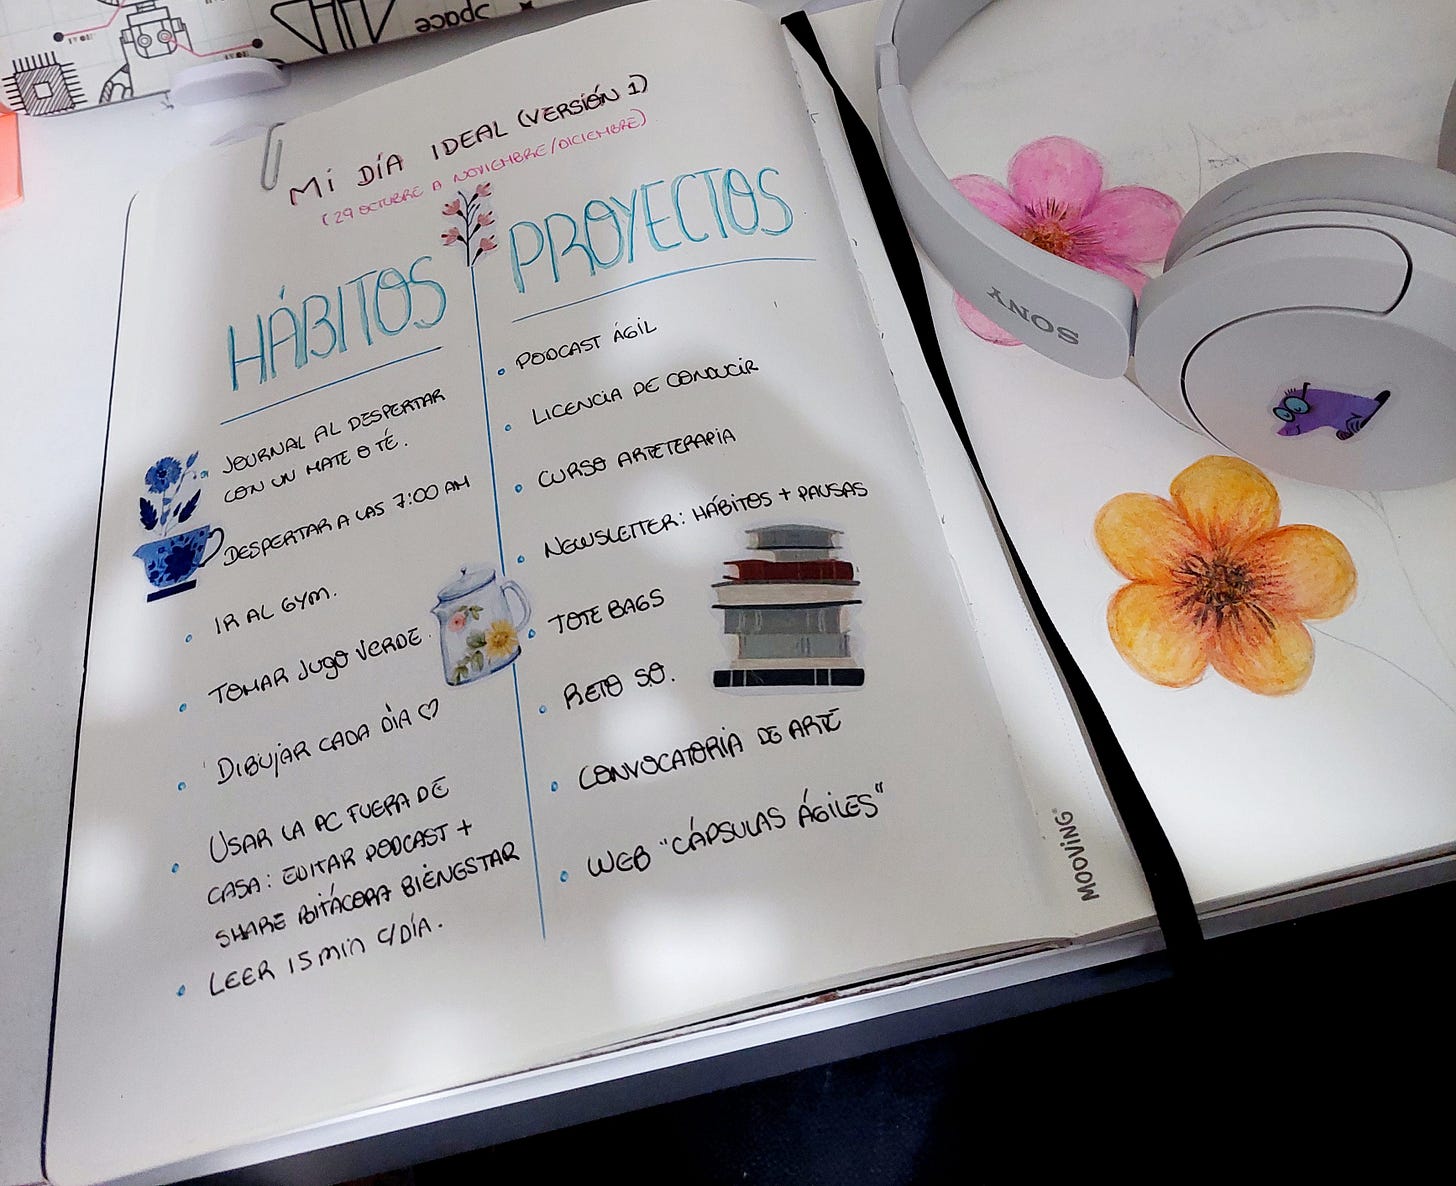 space
MI DÍA IDEAL (VERSIÓN 1)
(29 OCTUBRE A NOVIEMBRE/DICIEMBRE)
HÁBITOS
JOURNAL AL DESPERTAR
CON UN MATE O TÉ.
DESPERTAR A LAS 7:00 AM
IR AL GYM.
TOMAR JUGO VERDE.
DIBUJAR CADA DÍA ♡
USAR LA PC FUERA DE
CASA: EDITAR PODCAST +
SHARE BITÁCORA BIENESTAR
LEER 15 MIN C/DÍA.
PROYECTOS
PODCAST ÁGIL
LICENCIA DE CONDUCIR
CURSO ARTETERAPIA
NEWSLETTER: HÁBITOS + PAUSAS
TOTE BAGS
RETO 50.
CONVOCATORIA DE ARTE
WEB "CÁPSULAS ÁGILES"
MOOVING
SONY